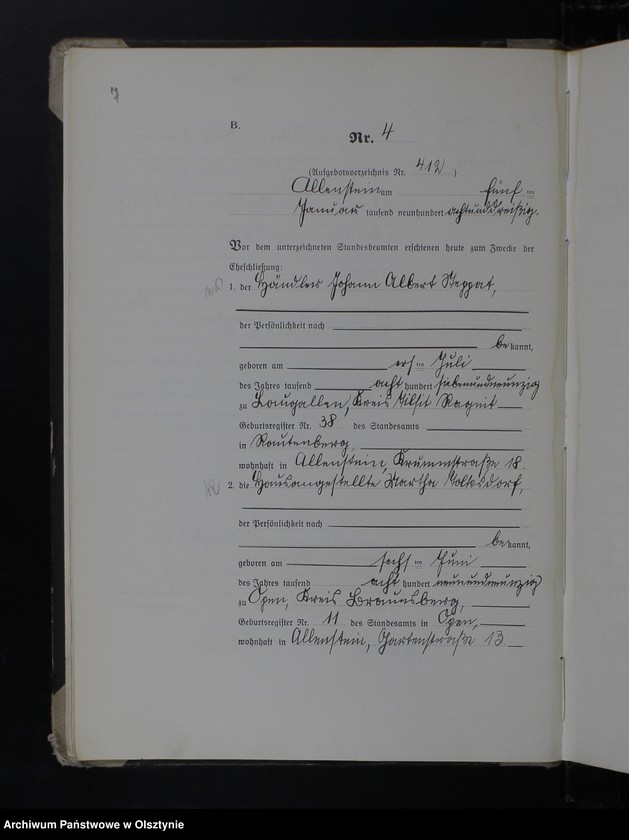 7
B.
Nr. 4
(Aufgebotsverzeichnis Nr. 412 )
Allenstein am fünf ten
Januar tausend neunhundert achtunddreißig.
Vor dem unterzeichneten Standesbeamten erschienen heute zum Zwecke der
Eheschließung:
1. der Händler Johann Albert Steppat,
der Persönlichkeit nach
be kannt,
geboren am ers ten Juli
des Jahres tausend acht hundert siebenundneunzig
zu Laugallen, Kreis Tilsit Ragnit
Geburtsregister Nr. 38 des Standesamts
in Rautenberg,
wohnhaft in Allenstein, Krummstraße 18.
2. die Hausangestellte Martha Volksdorf,
der Persönlichkeit nach
be kannt,
geboren am sechs ten Juni
des Jahres tausend acht hundert neunundneunzig
zu Open, Kreis Braunsberg,
Geburtsregister Nr. 11 des Standesamts in Open,
wohnhaft in Allenstein, Gartenstraße 13.
Archiwum Państwowe w Olsztynie